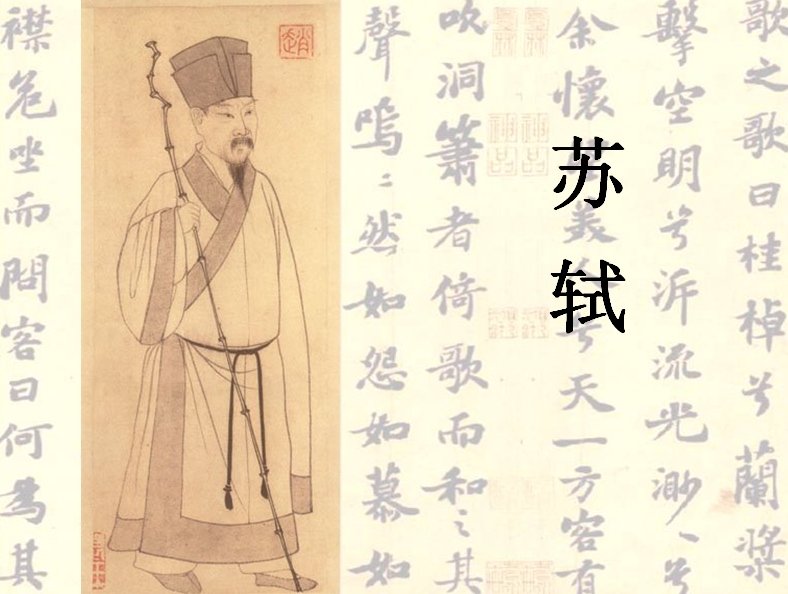 歌之歌曰桂棹兮蘭槳
擊空明兮泝流光渺〻兮
余懷美兮天一方客有
苏轼
吹洞簫者倚歌而和之其
聲嗚〻然如怨如慕如
襟危坐而問客曰何為其